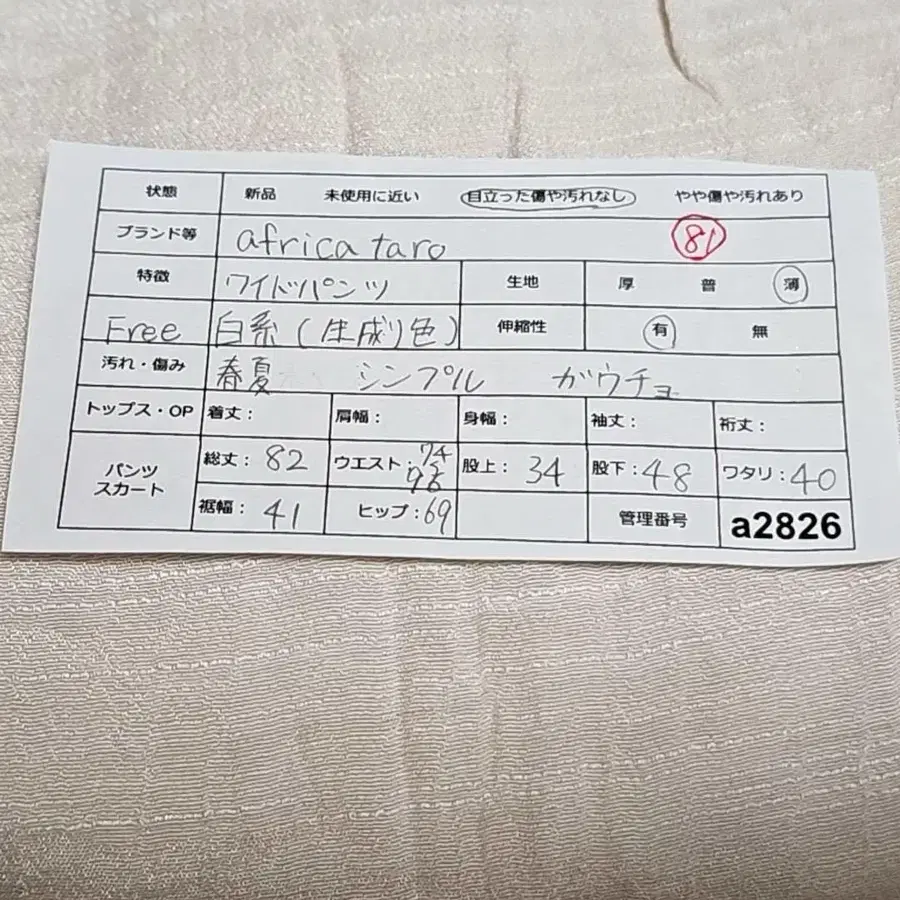 状態 新品 未使用に近い 目立った傷や汚れなし やや傷や汚れあり
ブランド等 africa taro 81
特徴 ワイドパンツ 生地 厚 普 薄
Free 白系(生成り色) 伸縮性 有 無
汚れ・傷み 春夏 シンプル ガウチョ
トップス・OP 着丈: 肩幅: 身幅: 袖丈: 裄丈:
パンツ スカート 総丈: 82 ウエスト: 74 96 股上: 34 股下: 48 ワタリ: 40
裾幅: 41 ヒップ: 69 管理番号 a2826